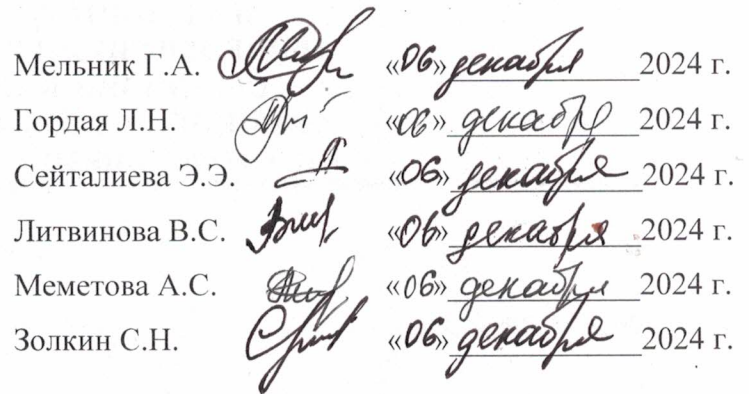 Мельник Г.А. «06» декабря 2024 г.
Гордая Л.Н. «06» декабря 2024 г.
Сейталиева Э.Э. «06» декабря 2024 г.
Литвинова В.С. «06» декабря 2024 г.
Меметова А.С. «06» декабря 2024 г.
Золкин С.Н. «06» декабря 2024 г.